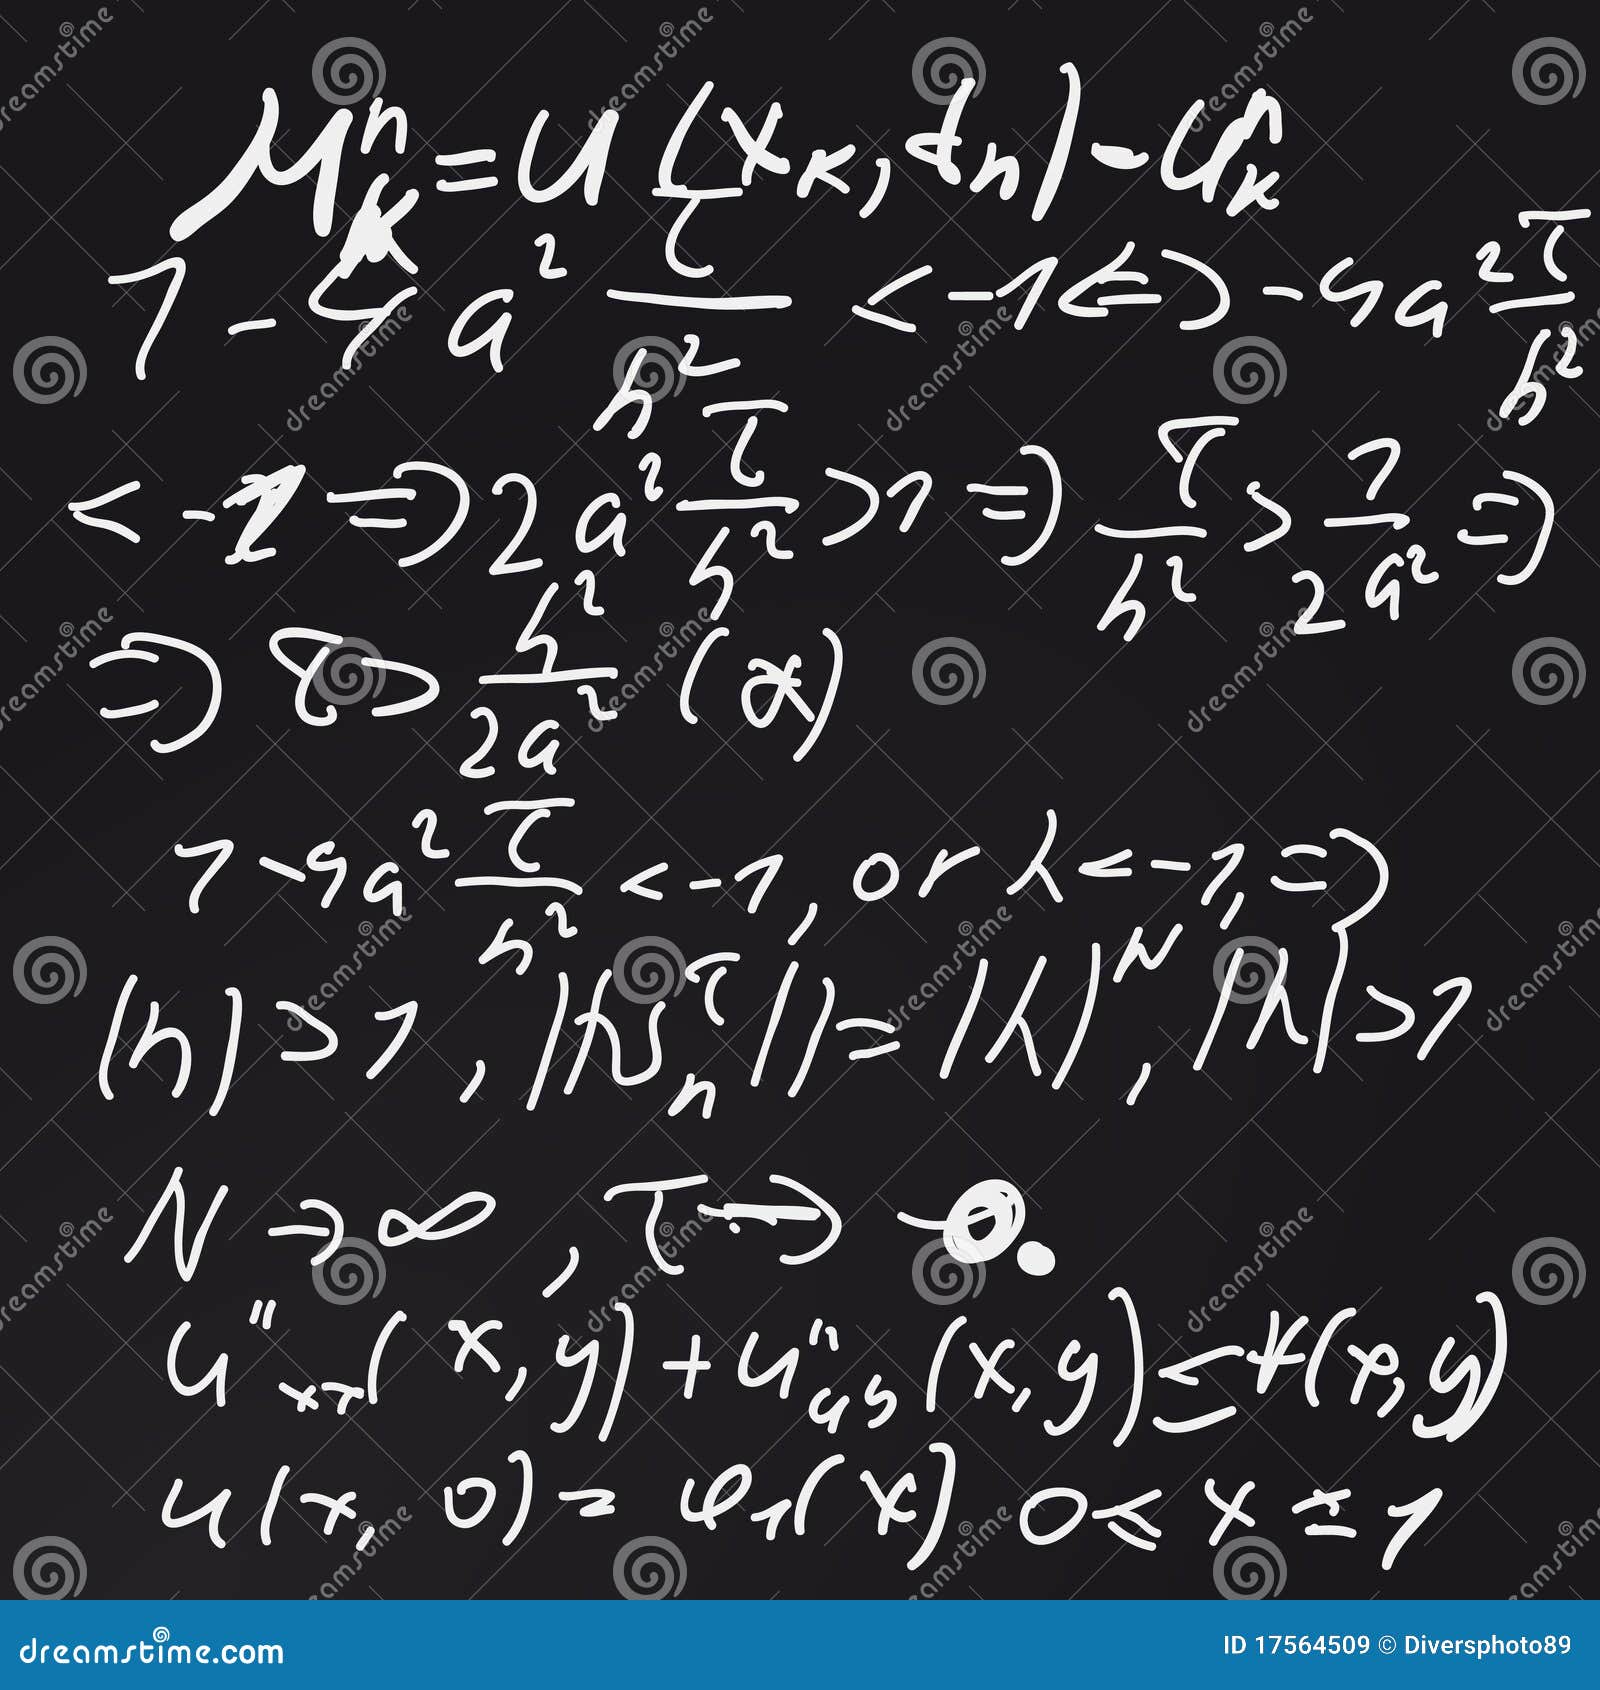 μ^n_k = u(x_k, t_n) - u^n_k
1 - 4a² τ/h² < -1 <=> -4a² τ/h²
< -2 => 2a² τ/h² > 1 => τ/h² > 1/2a² =>
=> τ > h²/2a² (x)
1 - 4a² τ/h² < -1, or λ < -1, =>
(h) > 1, |h^τ_n|| = |λ|^N, |λ| > 1
N → ∞, τ → 0.
u''_xx(x,y) + u''_yy(x,y) ≤ f(x,y)
u(x, 0) = φ₁(x) 0 ≤ x ≤ 1
dreamstime.com
ID 17564509 © Diversphoto89